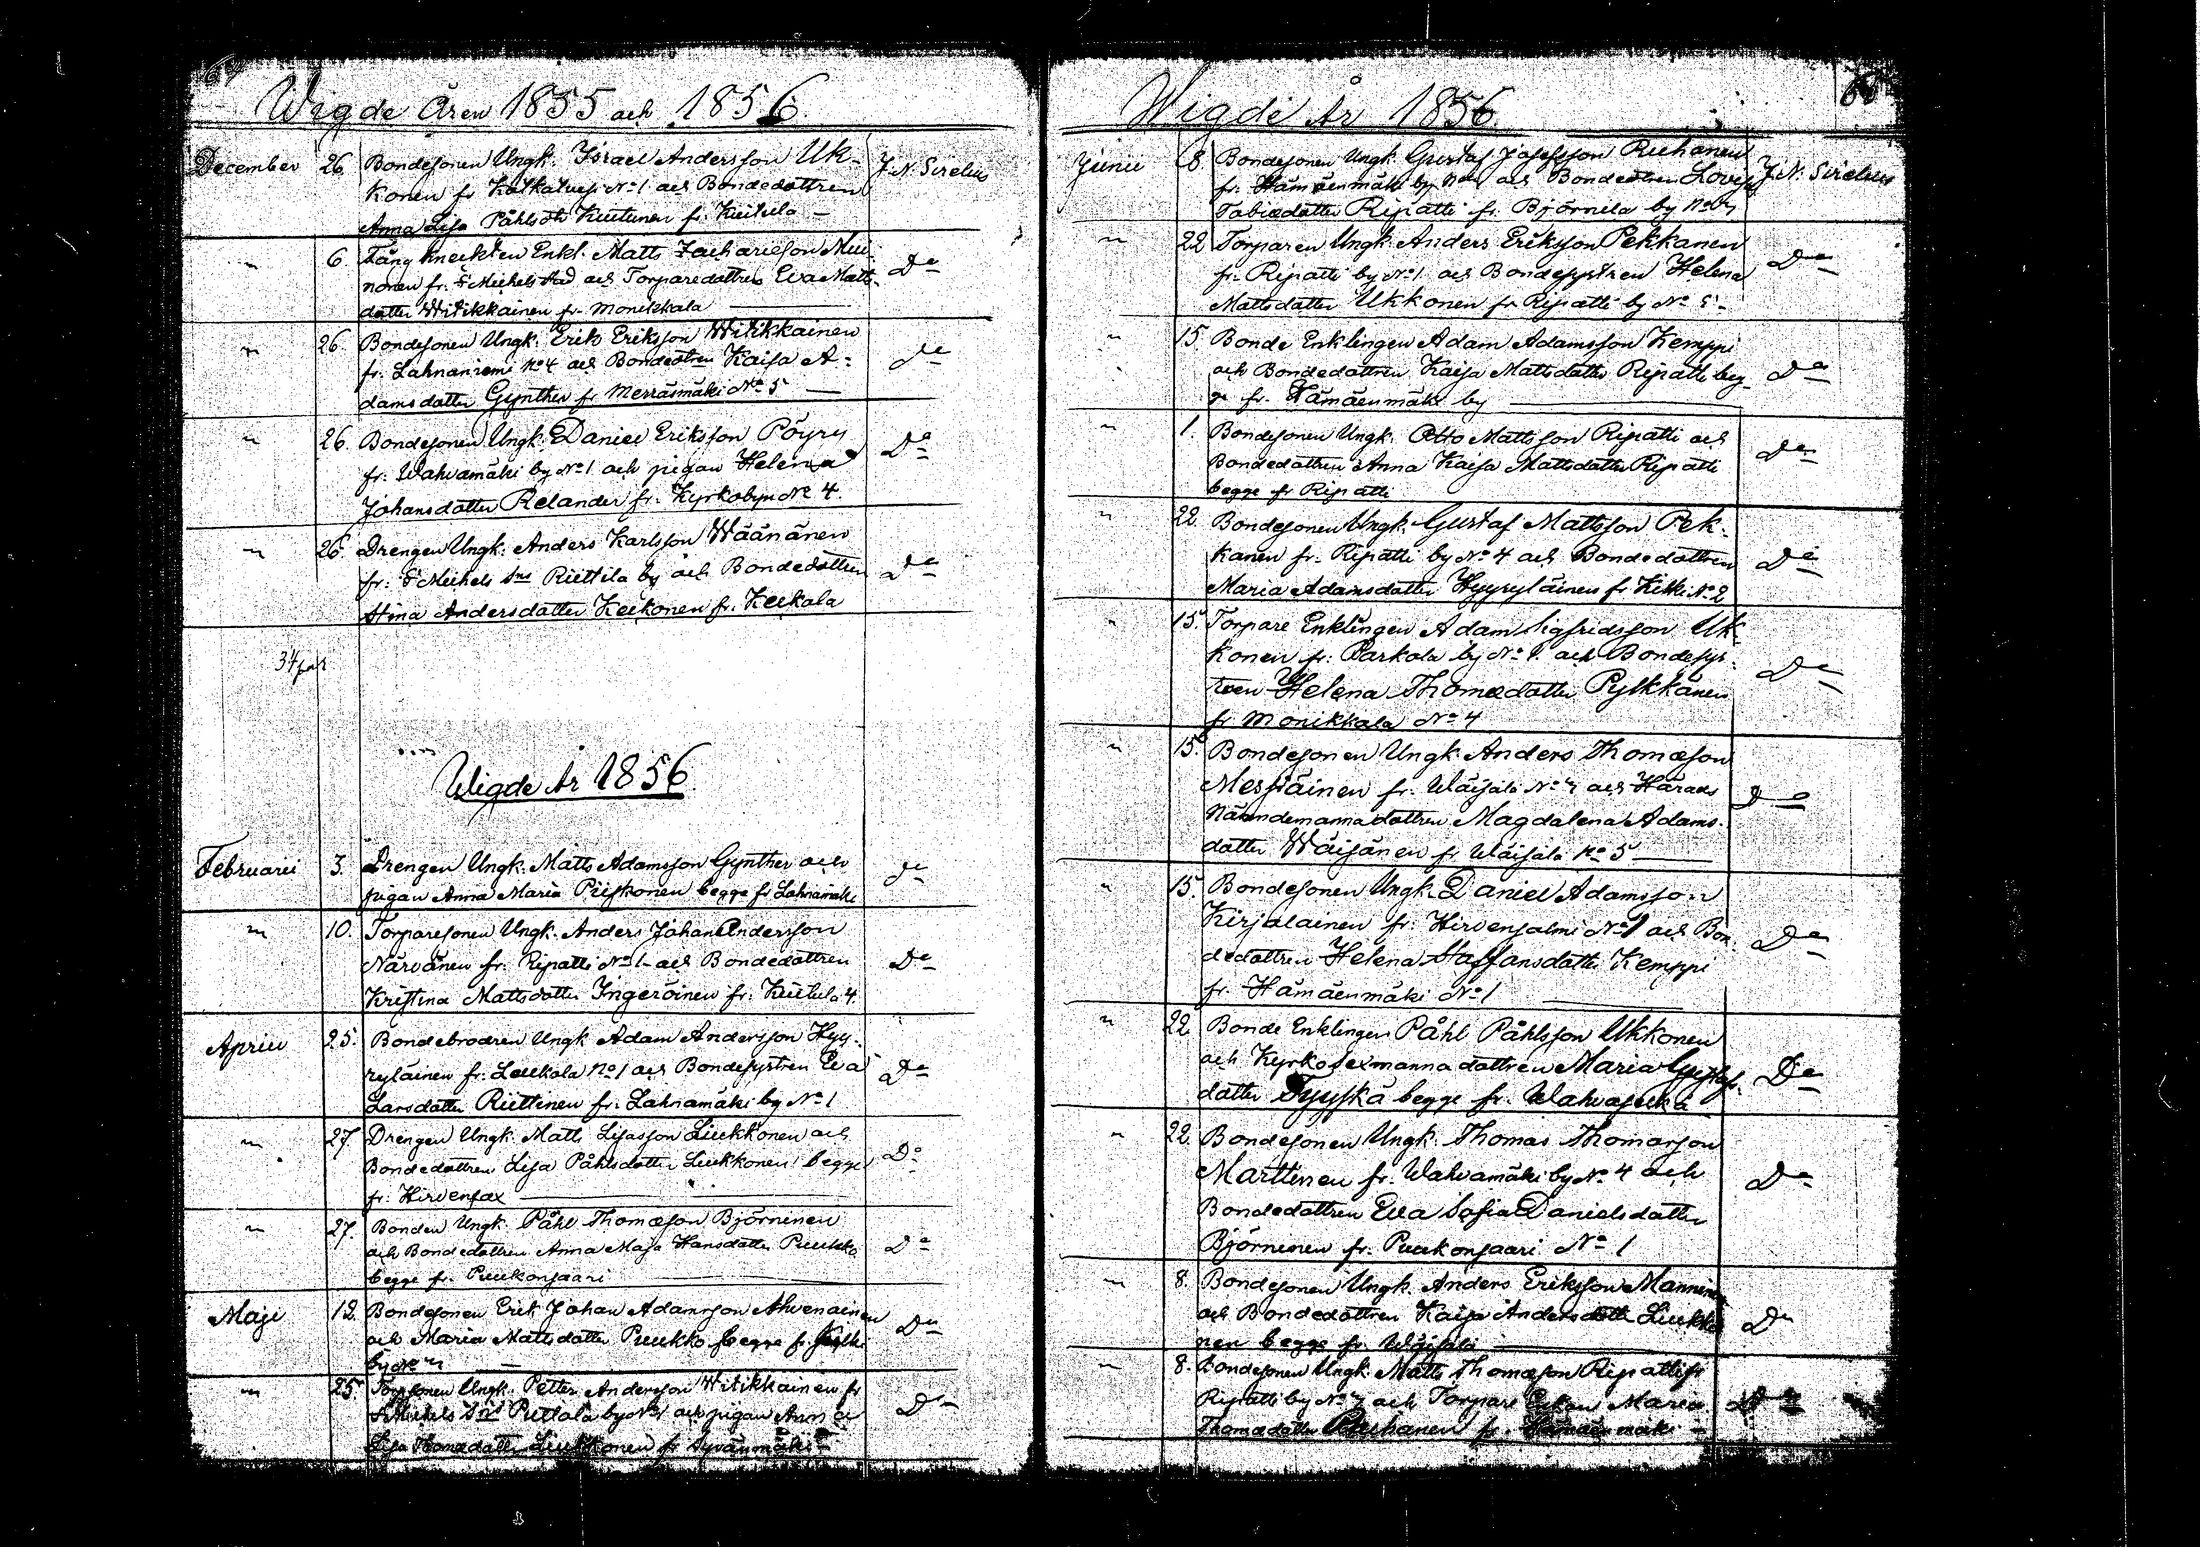 64
Wigde Åren 1855 och 1856.
December 26. Bondesonen Ungk. Israel Andersson Uk- J. N. Sirelius
konen fr Kalkatusj No 1 och Bondedottren
Anna Lisa Påhlsdtr Kiitunen fr. Kuitula –
" 6. Fångknekten Enkl. Matts Zachariesson Mui- Do
nonen fr. St Michels stad och Torparedottren Eva Matts-
dotter Witikkainen fr. Monikkala
" 26. Bondesonen Ungk. Erik Eriksson Witikkainen Do
fr. Lahnaniemi No 4 och Bondedtren Kaisa A-
damsdotter Gynther fr Merrasmäki No 5
" 26. Bondesonen Ungk. Daniel Eriksson Pöyry Do
fr. Wahvamäki by No 1 och pigan Helena
Johansdotter Relander fr. Kyrkobyn No 4.
" 26. Drengen Ungk. Anders Karlsson Wäänänen Do
fr. St Michels Sns Riittila by och Bondedottren
Stina Andersdotter Keckonen fr. Keckala
34 par
Wigde År 1856.
Februarii 3. Drengen Ungk. Matts Adamsson Gynther och Do
pigan Anna Maria Piiskonen begge fr Lahnamäki
" 10. Torparesonen Ungk. Anders Johan Andersson Do
Närvänen fr. Ripatti No 1 och Bondedottren
Kristina Mattsdotter Ingeröinen fr. Kuitula 4
Aprill 25. Bondebrodren Ungk Adam Andersson Hyy- Do
ryläinen fr. Leukola No 1 och Bondesystren Eva
Larsdotter Riittinen fr. Lahnamäki by No 1
" 27. Drengen Ungk. Matts Lisasson Liukkonen och Do
Bondedottren Lisa Påhlsdotter Liukkonen begge
fr. Hirvensax
" 27. Bonden Ungk. Påhl Thomasson Björninen Do
och Bondedottren Anna Maja Hansdotter Puukko
begge fr. Puukonsaari
Maji 12. Bondesonen Erik Johan Adamsson Ahvenainen Do
och Maria Mattsdotter Puukko begge fr
by No 7
" 25. Torpsonen Ungk. Petter Andersson Witikkainen fr Do
St Michels Sns Pettola by No 1 och pigan Anna
Lisa Thomædotter Liukkonen fr Syvänmäki –
65
Wigde År 1856.
Junii 8. Bondesonen Ungk. Gustaf Josefsson Ruhanen J. N. Sirelius
fr. Hämäenmäki by No och Bondedtren Lovisa
Tobiædotter Ripatti fr. Björnila by No 7
" 22 Torparen Ungk. Anders Eriksson Pekkanen Do
fr. Ripatti by No 1. och Bondesystren Helena
Mattsdotter Ukkonen fr Ripatti by No 5 –
" 15 Bonde Enklingen Adam Adamsson Kemppi Do
och Bondedottren Kaisa Mattsdotter Ripatti beg-
ge fr. Hämäenmäki by
" 1. Bondesonen Ungk. Otto Mattsson Ripatti och Do
Bondedottren Anna Kaisa Mattsdotter Ripatti
begge fr Ripatti
" 22. Bondesonen Ungk. Gustaf Mattsson Pek- Do
kanen fr. Ripatti by No 4 och Bondedottren
Maria Adamsdotter Hyyryläinen fr Kitki No 2
" 15. Torpare Enklingen Adam Sigfridsson Uk- Do
konen fr. Parkola by No 1. och Bondesys-
tren Helena Thomædotter Pylkkänen
fr. Monikkala No 4
" 15. Bondesonen Ungk. Anders Thomæson Do
Messiäinen fr. Wäisälä No 7 och Härads
Nämndemannadottren Magdalena Adams-
dotter Wäisänen fr. Wäisälä No 5
" 15. Bondesonen Ungk. Daniel Adamsson Do
Kirjalainen fr. Hirvensalmi No 1 och Bon-
dedottren Helena Staffansdotter Kemppi
fr. Hämäenmäki No 1
" 22 Bonde Enklingen Påhl Påhlsson Ukkonen Do
och Kyrkosexmannadottren Maria Gustafs-
dotter Tyyskä begge fr. Wahvaselkä
" 22. Bondesonen Ungk. Thomas Thomasson Do
Marttinen fr. Wahvamäki by No 4 och
Bondedottren Eva Sofia Danielsdotter
Björninen fr. Puukonsaari No 1
" 8. Bondesonen Ungk. Anders Eriksson Manninen Do
och Bondedottren Kaisa Andersdotter Liukko-
nen begge fr. Wäisälä
" 8. Bondesonen Ungk. Matts Thomæson Ripatti fr Do
Ripatti by No 7 och Torpare Enkan Maria
Thomædotter Ruuhanen fr. Hämäenmäki –